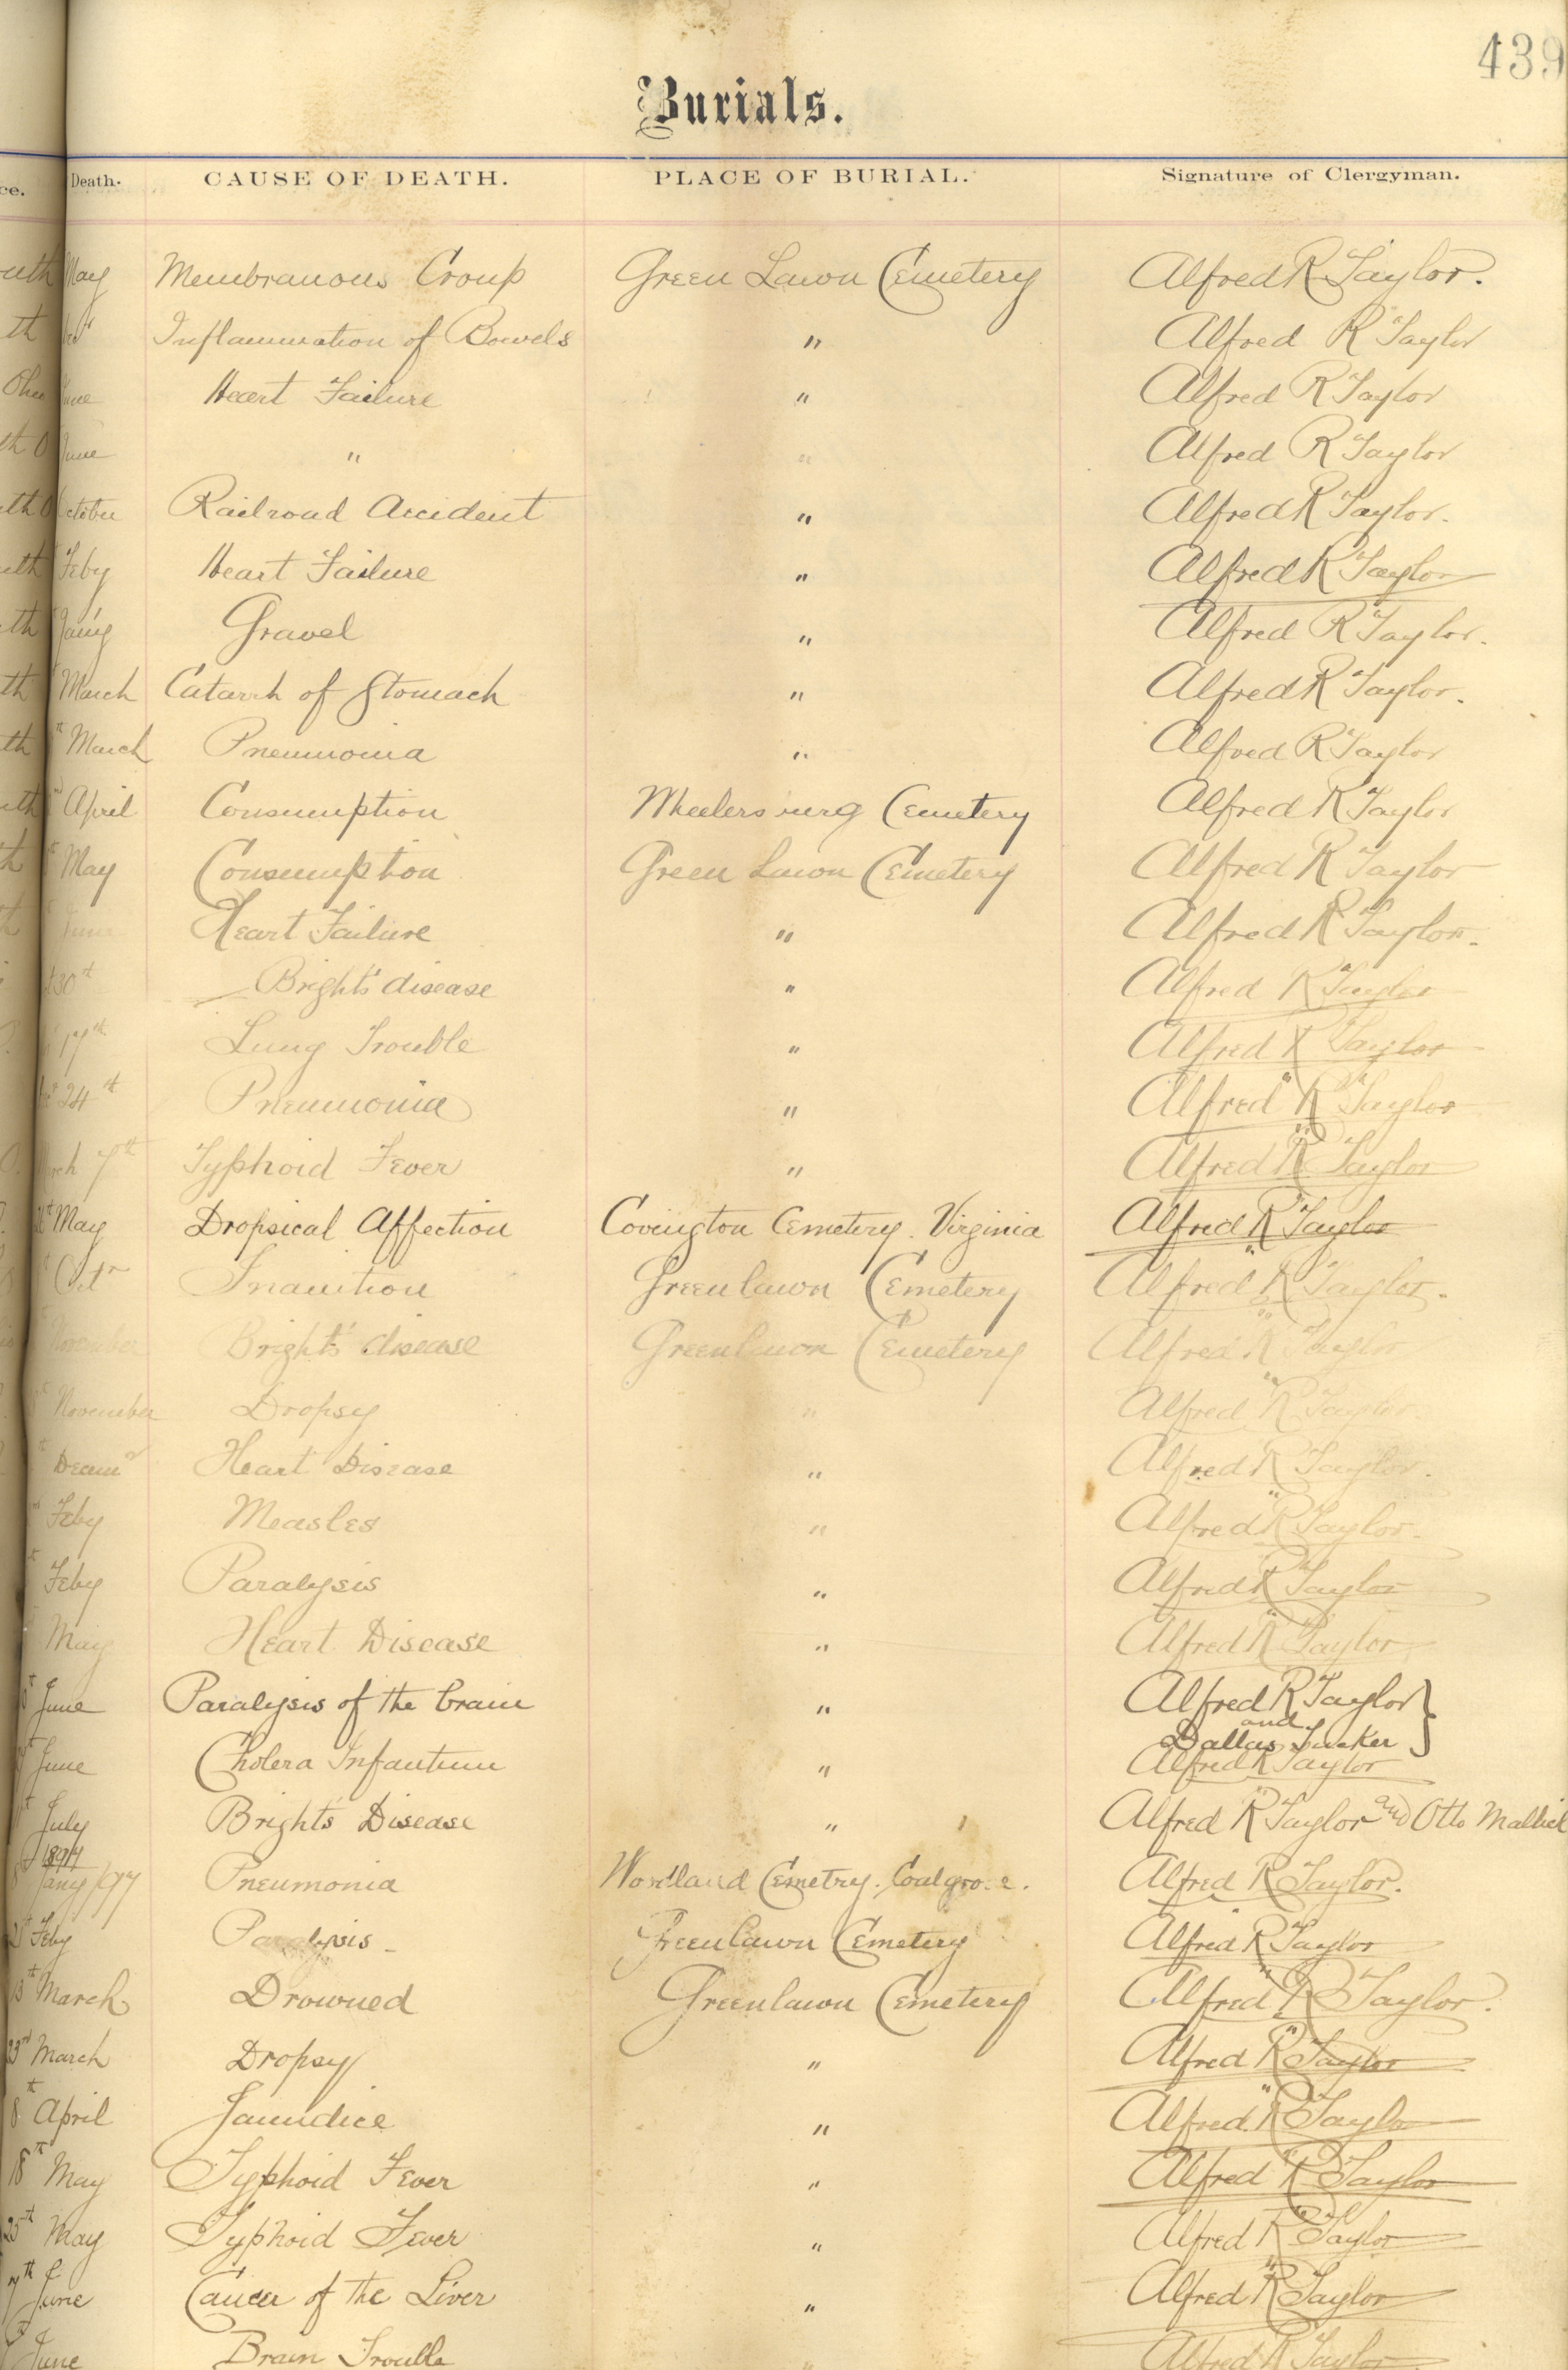 439
Burials.
ce. Death. CAUSE OF DEATH. PLACE OF BURIAL. Signature of Clergyman.
May Membranous Croup Green Lawn Cemetery Alfred R Taylor.
th Inflammation of Bowels " Alfred R Taylor
Ohio June Heart Failure " Alfred R Taylor
June " " Alfred R Taylor
October Railroad Accident " Alfred R Taylor.
Feby Heart Failure " Alfred R Taylor
th Gravel " Alfred R Taylor.
th March Catarrh of Stomach " Alfred R Taylor.
th March Pneumonia " Alfred R Taylor
April Consumption Wheelersburg Cemetery Alfred R Taylor
May Consumption Green Lawn Cemetery Alfred R Taylor
June Heart Failure " Alfred R Taylor.
30th Bright's disease " Alfred R Taylor
17th Lung Trouble " Alfred R Taylor
24th Pneumonia " Alfred R Taylor
7th Typhoid Fever " Alfred R Taylor
May Dropsical Affection Covington Cemetery. Virginia Alfred R Taylor
Octr Inanition Greenlawn Cemetery Alfred R Taylor.
November Bright's disease Greenlawn Cemetery Alfred R Taylor
November Dropsy " Alfred R Taylor.
Heart Disease " Alfred R Taylor.
Feby Measles " Alfred R Taylor.
Feby Paralysis " Alfred R Taylor
May Heart Disease " Alfred R Taylor
June Paralysis of the brain " Alfred R Taylor }
and
Dallas Tucker
June Cholera Infantum " Alfred R Taylor
July Bright's Disease " Alfred R Taylor and Otto
1897
Jany /97 Pneumonia Woodland Cemetry. Coalgrove. Alfred R Taylor.
Feby Paralysis Greenlawn Cemetery Alfred R Taylor
March Drowned Greenlawn Cemetery Alfred R Taylor.
23rd March Dropsy " Alfred R Taylor
8th April Jaundice " Alfred. R Taylor
18th May Typhoid Fever " Alfred R Taylor
25th May Typhoid Fever " Alfred R Taylor
7th June Cancer of the Liver " Alfred R Taylor
June Brain Trouble " Alfred R Taylor